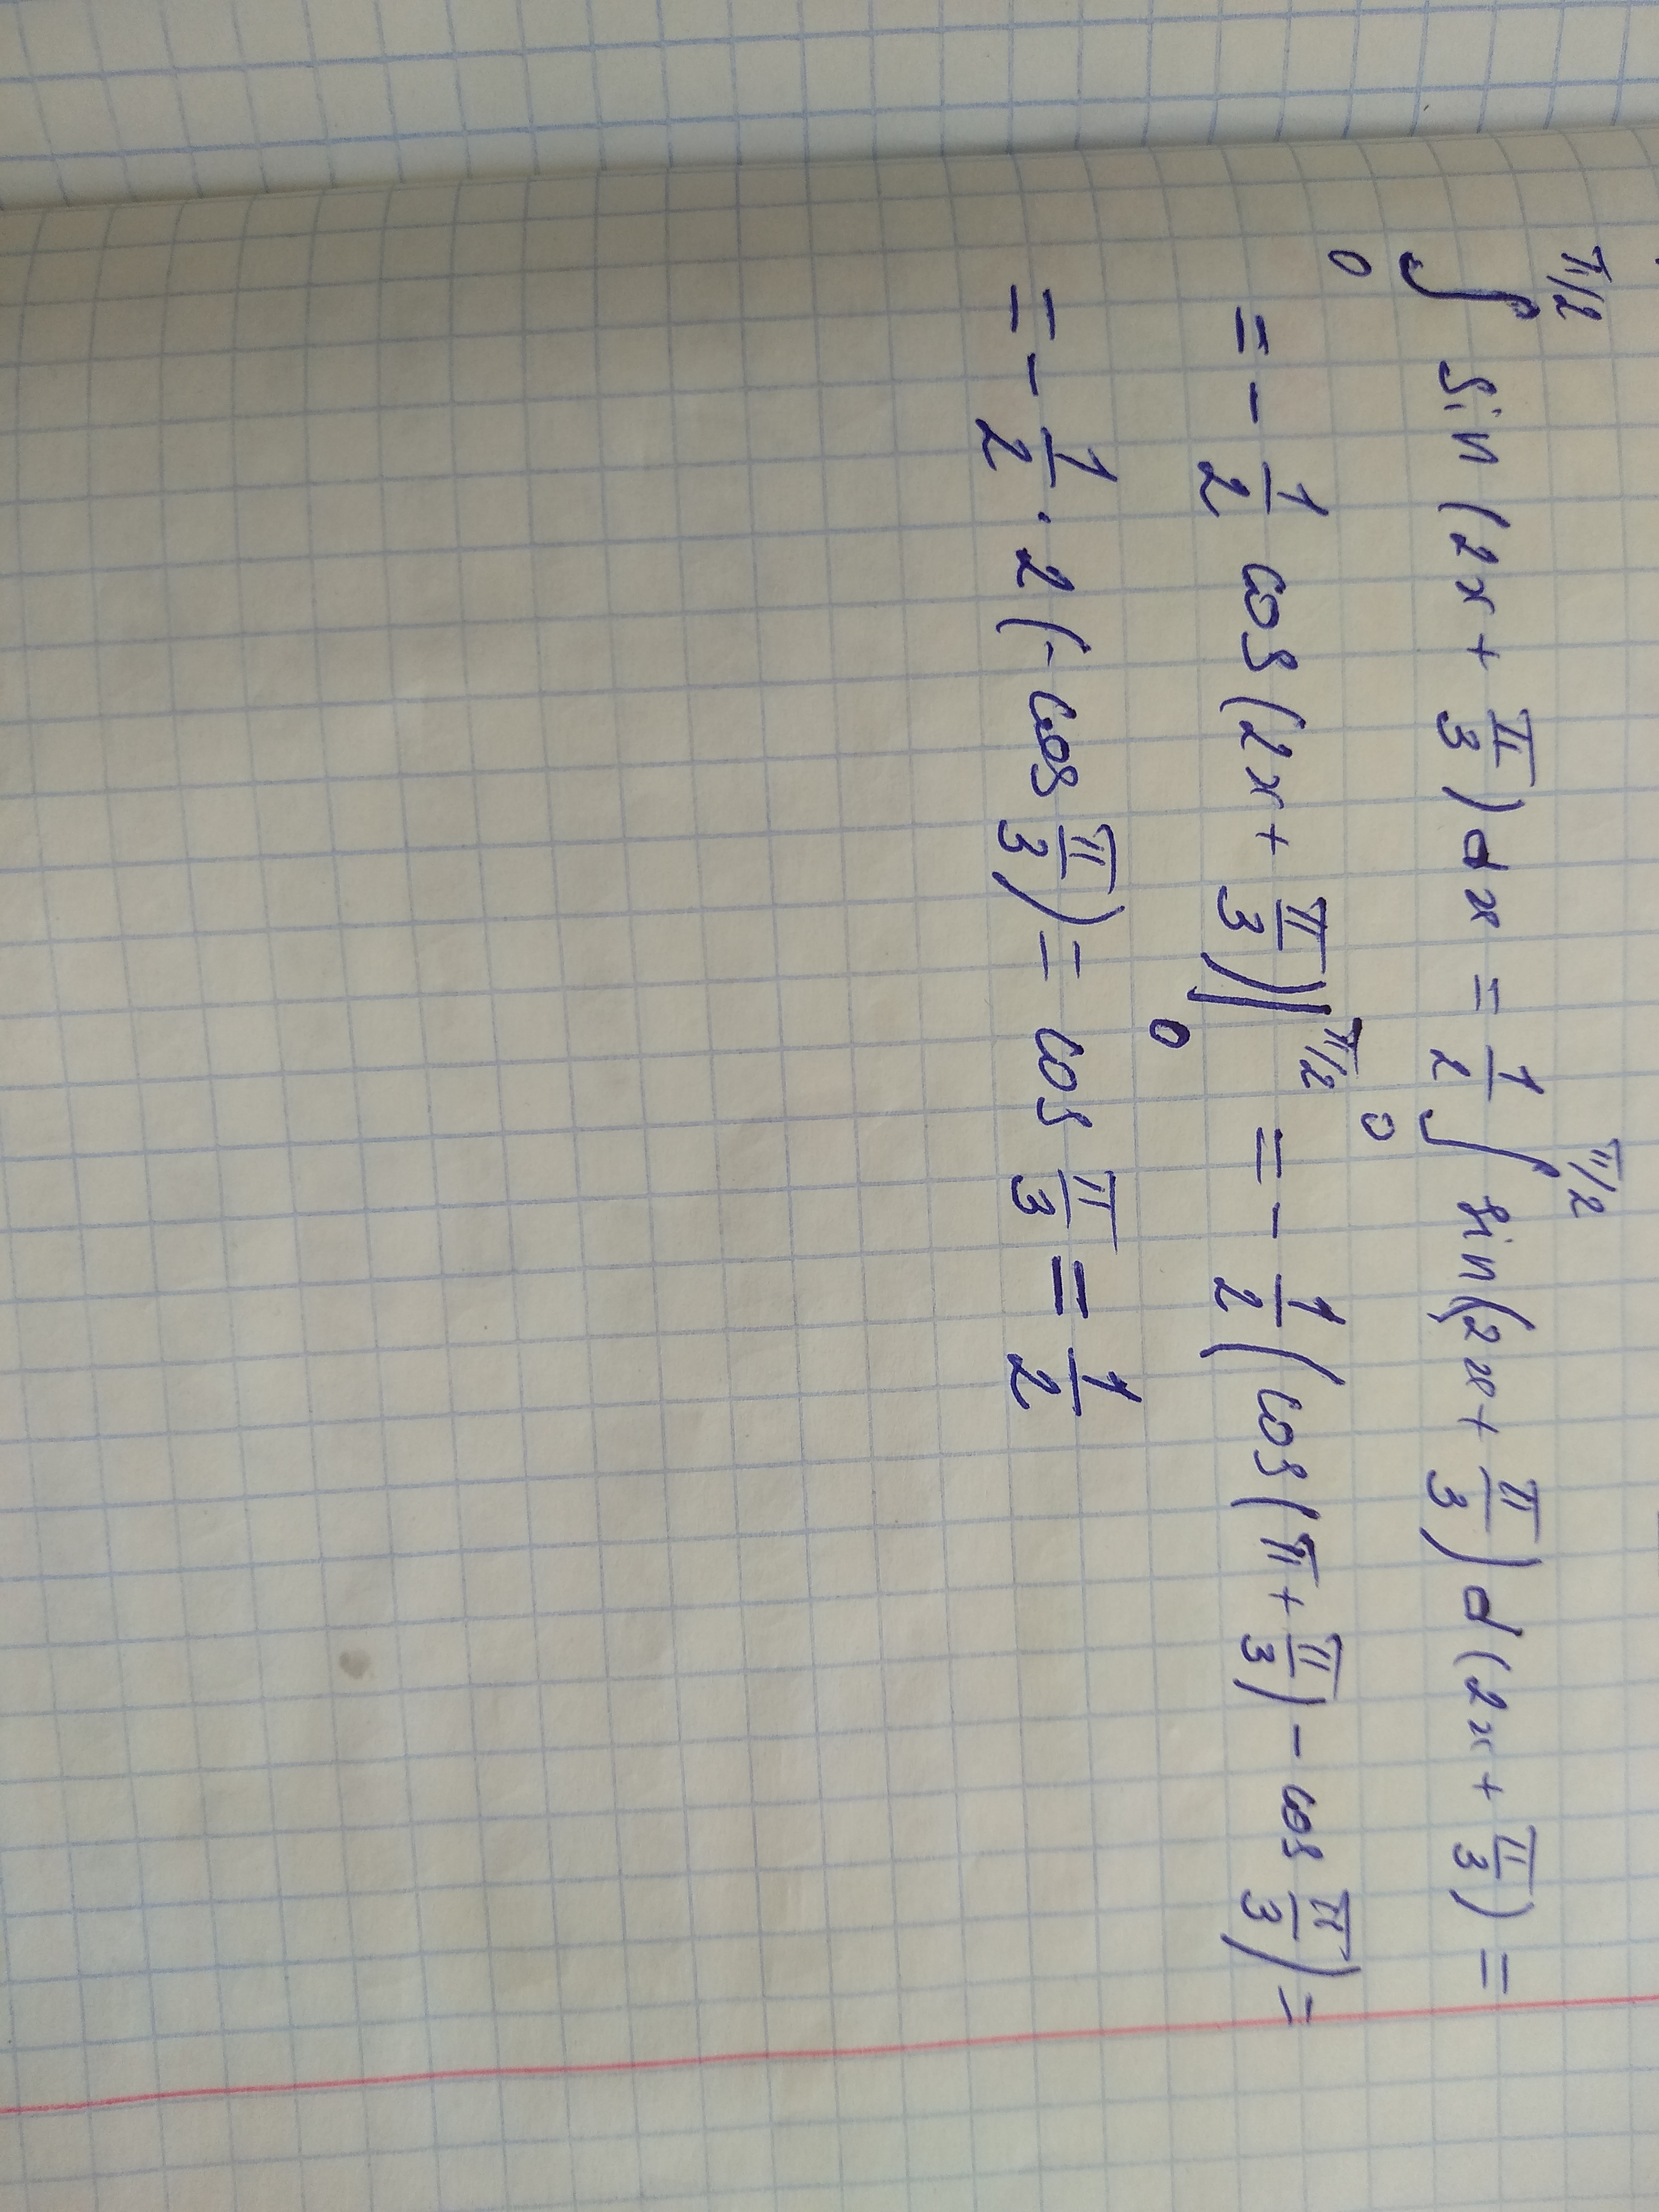 ∫₀^{π/2} sin(2x + π/3)dx = 1/2 ∫₀^{π/2} sin(2x + π/3)d(2x + π/3) =
= - 1/2 cos(2x + π/3)|₀^{π/2} = - 1/2 (cos(π + π/3) - cos π/3) =
= - 1/2 · 2(- cos π/3) = cos π/3 = 1/2